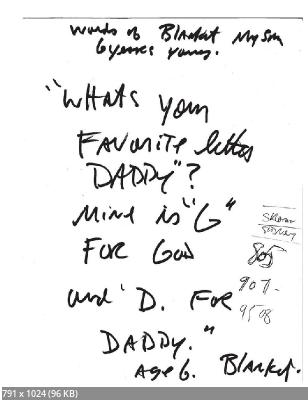 words of Blanket My Son
6 years young.
"WHATS YOUR
FAVORITE letter
DADDY"?
MINE is "G"
FOR GOD
and 'D. FOR
DADDY."
Age 6. Blanket.
805
907-
9508
791 x 1024 (96 KB)